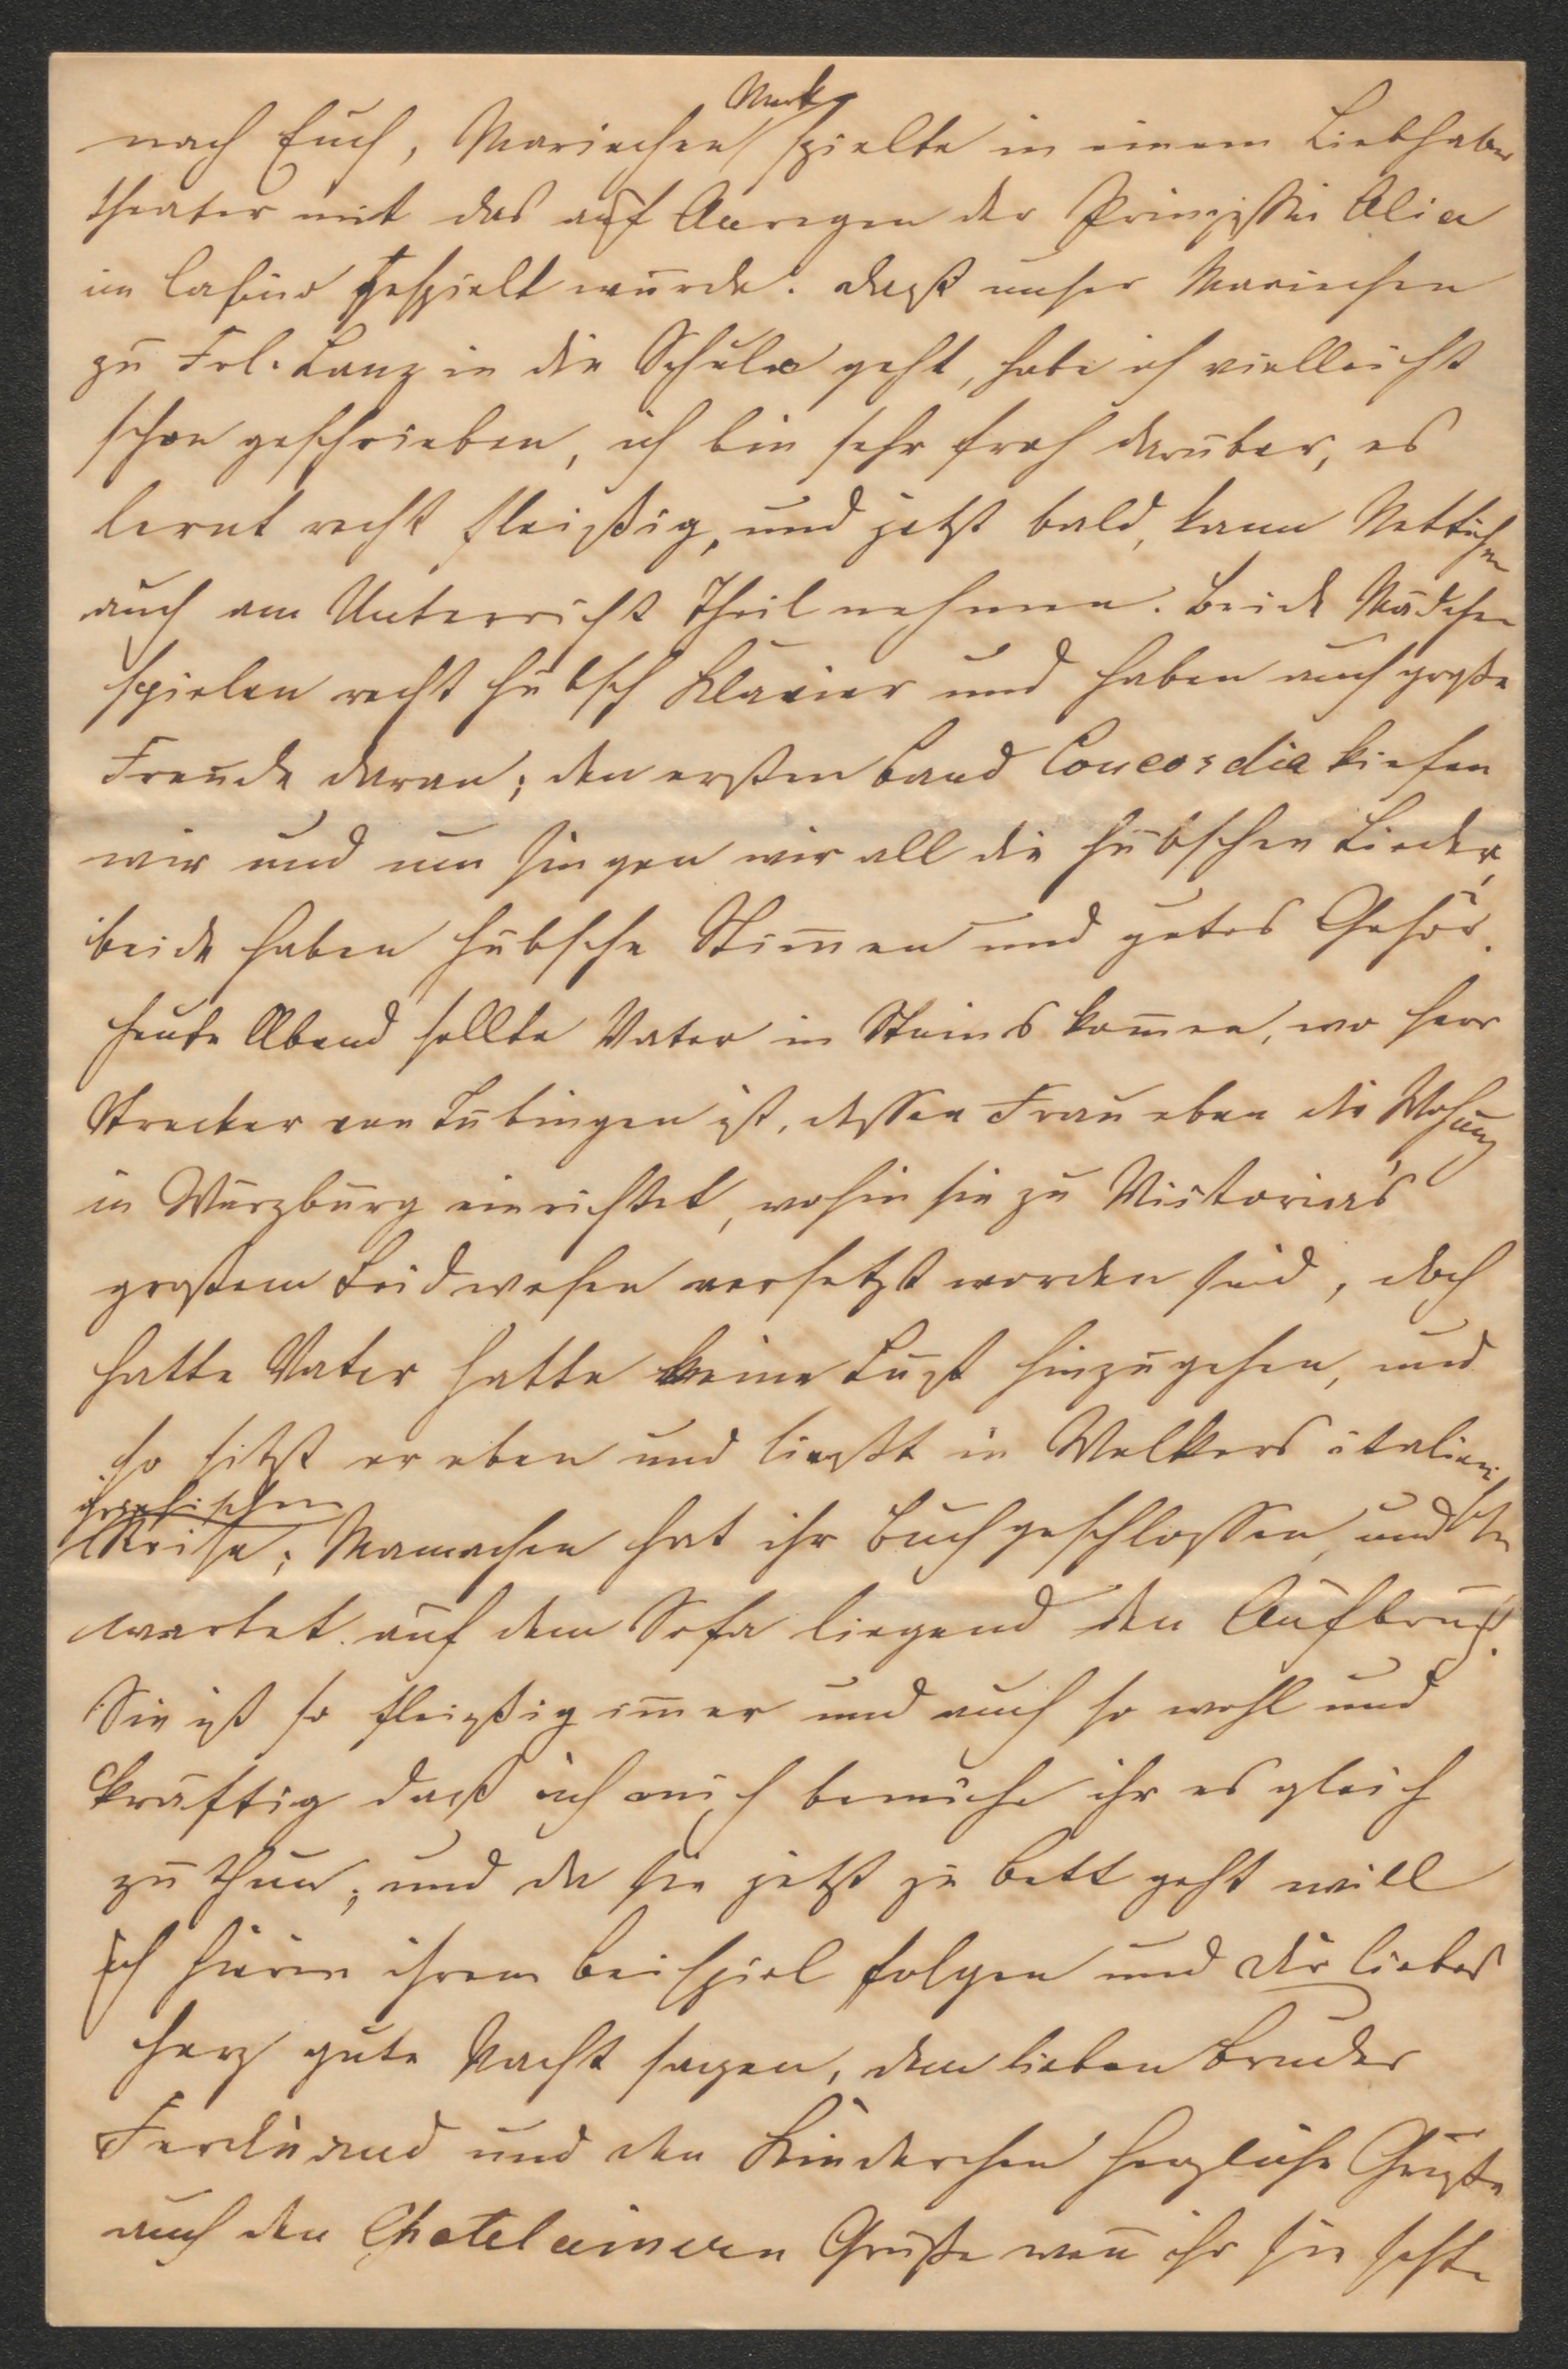 Merk
nach Euch, Mariechen spielte in einem Liebhaber
theater mit das auf Anregen der Prinzessin Alice
im Casino gespielt wurde. daß unser Mariechen
zu Frl. Lanz in die Schule geht, habe ich vielleicht
schon geschrieben, ich bin sehr froh darüber, es
lernt recht fleißig, und jetzt bald, kann Nettchen
auch am Unterricht Theil nehmen. Beide Mädchen
spielen recht hübsch Klavier und haben auch große
Freude daran; den ersten Band Concordia kiefen
wir und nun singen wir all die hübschen Lieder,
beide haben hübsche Stim̄en und gutes Gehör.
heute Abend sollte Vater in Steins kom̄en, wo herr
Strecker von Tübingen ist, dessen Frau eben die Wohnung
in Würzburg einrichtet, wohin sie zu Victoria's
großem Leidwesen versetzt worden sind, doch
hatte Vater hatte keine Lust hinzugehen, und
so sitzt er eben und ließt in Welkers italieni
griechischen
Reise; Mamachen hat ihr Buch geschlossen, und schn
wartet auf dem Sofa liegend den Aufbruch.
Sie ist so fleißig im̄er und auch so wohl und
kräftig daß ich mich bemühe ihr es gleich
zu thun, und da sie jetzt zu Bett geht will
ich hierin ihrem Beispiel folgen und dir liebes
Herz gute Nacht sagen, dem lieben Bruder
Ferdinand und den Kinderchen herzliche Grüße
auch den Chatelainern Grüße wen̄ ihr sie seht.